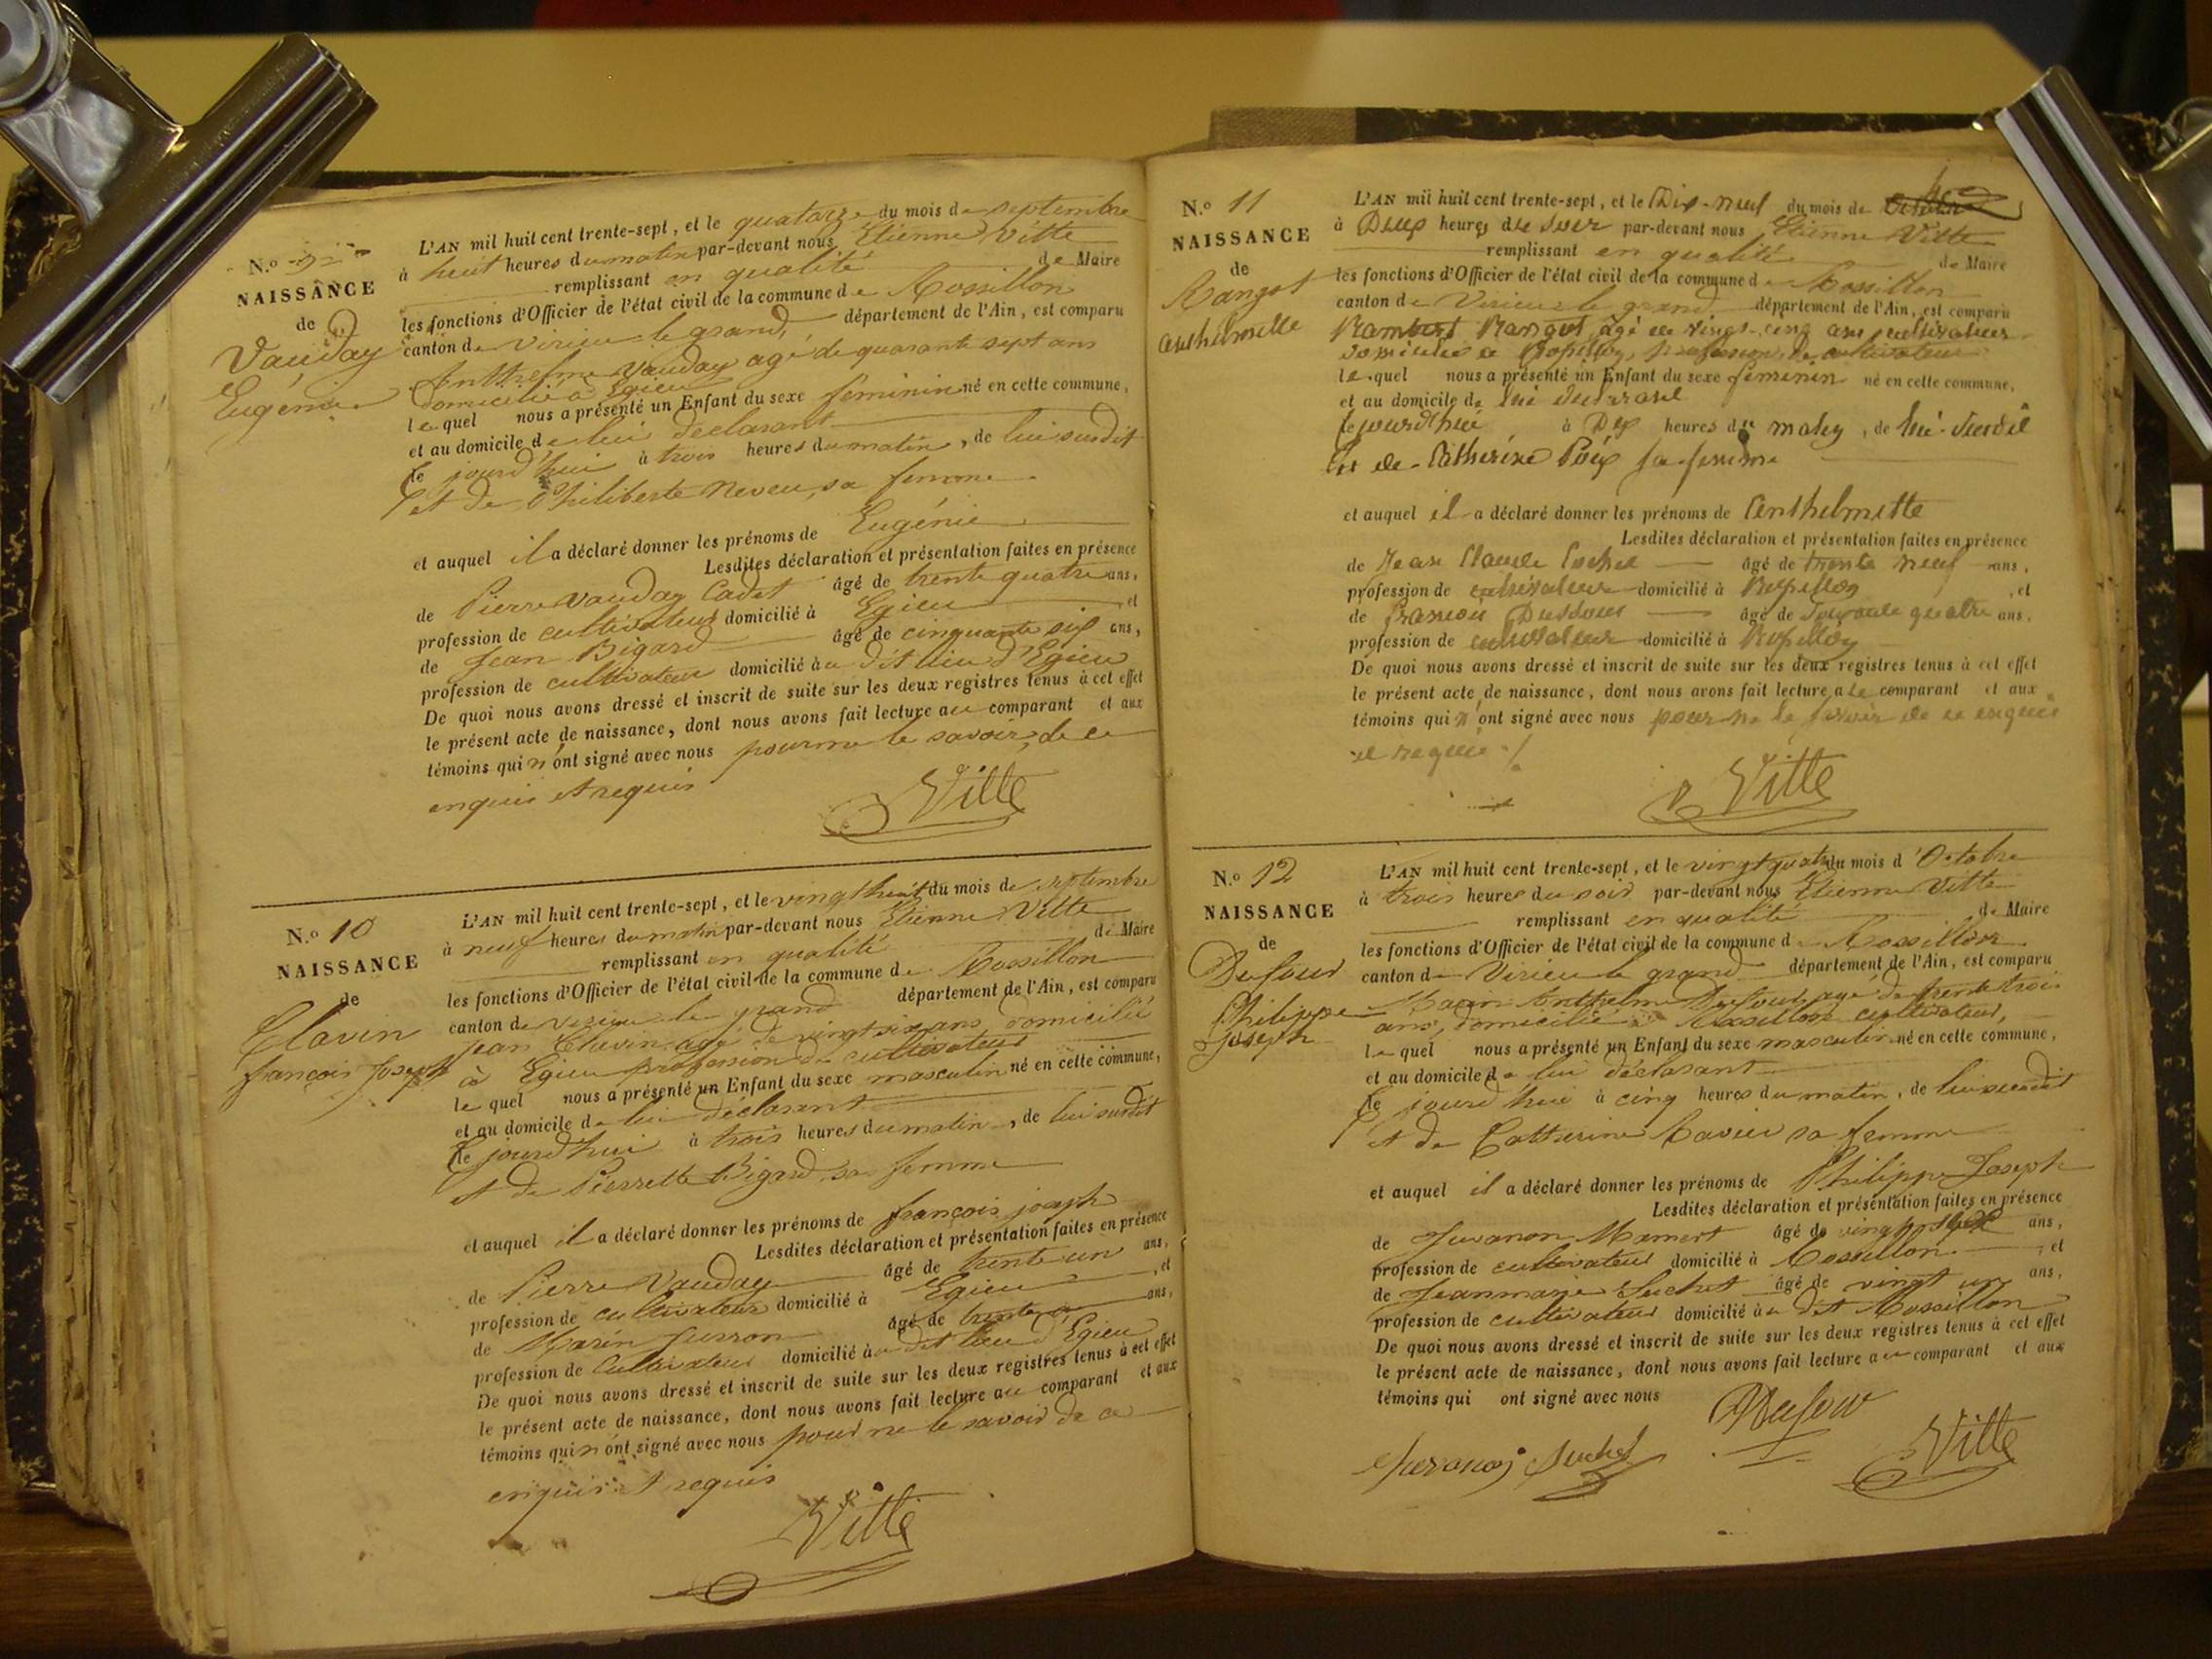 N.º 9
NAISSANCE
de
Vauday
Eugénie
L'AN mil huit cent trente-sept, et le quatorze du mois de septembre
à huit heures du matin par-devant nous Etienne Vitte
remplissant en qualité de Maire
les fonctions d'Officier de l'état civil de la commune de Rossillon
canton de Virieu le grand, département de l'Ain, est comparu
Anthelme Vauday agé de quarante sept ans
domicilié à Egieu
lequel nous a présenté un Enfant du sexe féminin né en cette commune,
et au domicile de lui déclarant
ce jourd'hui à trois heures du matin, de lui susdit
et de Philiberte Neveu, sa femme
et auquel il a déclaré donner les prénoms de Eugénie
Lesdites déclaration et présentation faites en présence
de Pierre Vauday Cadet âgé de trente quatre ans,
profession de cultivateur domicilié à Egieu, et
de Jean Bigard âgé de cinquante six ans,
profession de cultivateur domicilié au dit lieu d'Egieu
De quoi nous avons dressé et inscrit de suite sur les deux registres tenus à cet effet
le présent acte de naissance, dont nous avons fait lecture au comparant et aux
témoins qui n'ont signé avec nous pour ne le savoir, de ce
enquis et requis
Vitte
N.º 10
NAISSANCE
de
Clavin
françois Joseph
L'AN mil huit cent trente-sept, et le vingt huit du mois de septembre
à neuf heures du matin par-devant nous Etienne Vitte
remplissant en qualité de Maire
les fonctions d'Officier de l'état civil de la commune de Rossillon
canton de virieu le grand département de l'Ain, est comparu
jean Clavin agé de vingt six ans domicilié
à Egieu profession de cultivateur
lequel nous a présenté un Enfant du sexe masculin né en cette commune,
et au domicile de lui déclarant
ce jourd'hui à trois heures du matin, de lui susdit
et de Pierrette Bigard sa femme
et auquel il a déclaré donner les prénoms de françois joseph
Lesdites déclaration et présentation faites en présence
de Pierre Vauday âgé de trente un ans,
profession de cultivateur domicilié à Egieu, et
de Marin âgé de trente ans,
profession de Cultivateur domicilié au dit lieu d'Egieu
De quoi nous avons dressé et inscrit de suite sur les deux registres tenus à cet effet
le présent acte de naissance, dont nous avons fait lecture au comparant et aux
témoins qui n'ont signé avec nous pour ne le savoir de ce
enquis et requis
Vitte
N.º 11
NAISSANCE
de
Rangot
anthelmette
L'AN mil huit cent trente-sept, et le Dix-neuf du mois de
à Deux heures du soir par-devant nous Etienne Vitte
remplissant en qualité de Maire
les fonctions d'Officier de l'état civil de la commune de Rossillon
canton de Virieu le grand département de l'Ain, est comparu
Rambert Rangot, âgé de vingt-cinq ans cultivateur
domicilié à Rossillon, profession de cultivateur
lequel nous a présenté un Enfant du sexe féminin né en cette commune,
et au domicile de lui
ce jourdhui à Dix heures du matin, de lui susdit
et de Catherine sa femme
et auquel il a déclaré donner les prénoms de Anthelmette
Lesdites déclaration et présentation faites en présence
de Jean Claude âgé de trente neuf ans,
profession de cultivateur domicilié à Rossillon, et
de François Dufour âgé de soixante quatre ans,
profession de cultivateur domicilié à Rossillon
De quoi nous avons dressé et inscrit de suite sur les deux registres tenus à cet effet
le présent acte de naissance, dont nous avons fait lecture a le comparant et aux
témoins qui n'ont signé avec nous pour ne le savoir de ce enquis
et requis
Vitte
N.º 12
NAISSANCE
de
Dufour
Philippe
Joseph
L'AN mil huit cent trente-sept, et le vingt quatre du mois d'Octobre
à trois heures du soir par-devant nous Etienne Vitte
remplissant en qualité de Maire
les fonctions d'Officier de l'état civil de la commune de Rossillon
canton de Virieu le grand département de l'Ain, est comparu
Anthelme Dufour, agé de trente trois
ans, domicilié à Rossillon cultivateur,
lequel nous a présenté un Enfant du sexe masculin né en cette commune,
et au domicile de lui déclarant
ce jourd'hui à cinq heures du matin, de lui susdit
et de Catherine Ravier sa femme
et auquel il a déclaré donner les prénoms de Philippe Joseph
Lesdites déclaration et présentation faites en présence
de Juvanon Mamert âgé de vingt ans,
profession de cultivateur domicilié à Rossillon, et
de Jeanmarie Suchet âgé de vingt un ans,
profession de cultivateur domicilié au dit Rossillon
De quoi nous avons dressé et inscrit de suite sur les deux registres tenus à cet effet
le présent acte de naissance, dont nous avons fait lecture au comparant et aux
témoins qui ont signé avec nous
Dufour
Juvanon Suchet Vitte